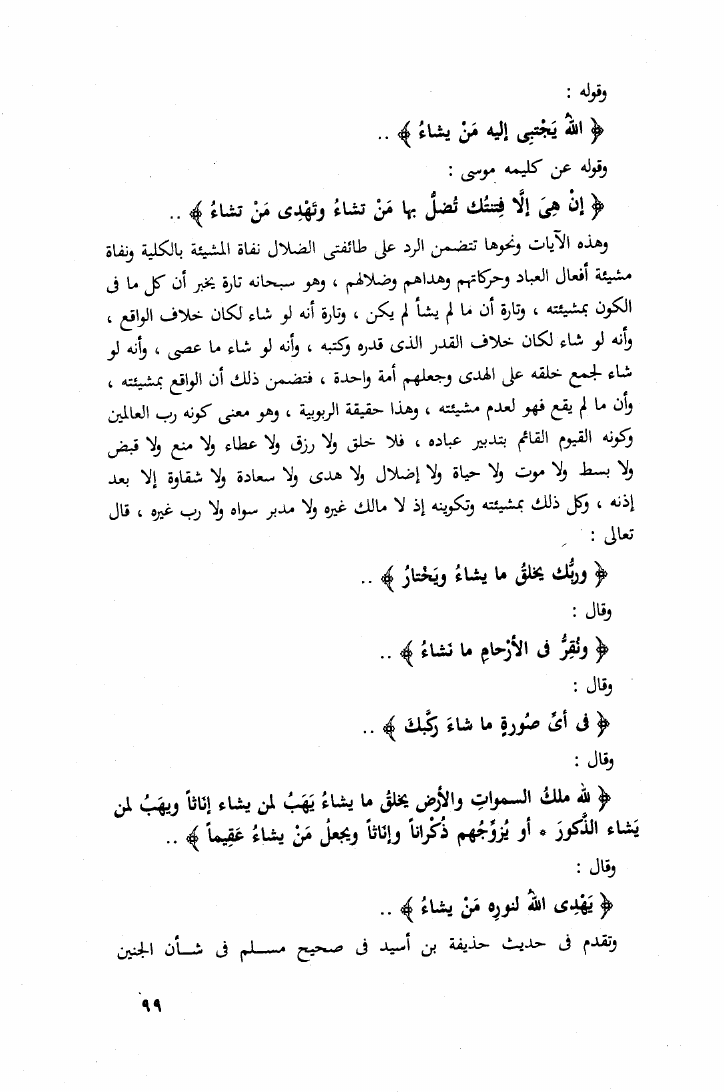 وقوله :
﴿ اللهُ يَجْتبِى إليه مَنْ يشاءُ ﴾ ..
وقوله عن كليمه موسى :
﴿ إنْ هِىَ إلَّا فِتنتُك تُضلُّ بها مَنْ تشاءُ وتَهْدِى مَنْ تشاءُ ﴾ ..
وهذه الآيات ونحوها تتضمن الرد على طائفتى الضلال نفاة المشيئة بالكلية ونفاة
مشيئة أفعال العباد وحركاتهم وهداهم وضلالهم ، وهو سبحانه تارة يخبر أن كل ما فى
الكون بمشيئته ، وتارة أن ما لم يشأ لم يكن ، وتارة أنه لو شاء لكان خلاف الواقع ،
وأنه لو شاء لكان خلاف القدر الذى قدره وكتبه ، وأنه لو شاء ما عصى ، وأنه لو
شاء لجمع خلقه على الهدى وجعلهم أمة واحدة ، فتضمن ذلك أن الواقع بمشيئته ،
وأن ما لم يقع فهو لعدم مشيئته ، وهذا حقيقة الربوبية ، وهو معنى كونه رب العالمين
وكونه القيوم القائم بتدبير عباده ، فلا خلق ولا رزق ولا عطاء ولا منع ولا قبض
ولا بسط ولا موت ولا حياة ولا إضلال ولا هدى ولا سعادة ولا شقاوة إلا بعد
إذنه ، وكل ذلك بمشيئته وتكوينه إذ لا مالك غيره ولا مدبر سواه ولا رب غيره ، قال
تعالى :
﴿ وربُّك يخلقُ ما يشاءُ ويَخْتارُ ﴾ ..
وقال :
﴿ ونُقِرُّ فى الأرْحامِ ما نَشاءُ ﴾ ..
وقال :
﴿ فى أىِّ صُورةٍ ما شاءَ ركَّبكَ ﴾ ..
وقال :
﴿ لله ملكُ السمواتِ والأرْض يخلقُ ما يشاءُ يَهَبُ لمن يشاء إناثاً ويهَبُ لمن
يَشاء الذُّكورَ * أو يُزوِّجُهم ذُكْراناً وإناثاً ويجعلُ مَنْ يشاءُ عَقِيماً ﴾ ..
وقال :
﴿ يَهْدِى اللهُ لنورِه مَنْ يشاءُ ﴾ ..
وتقدم فى حديث حذيفة بن أسيد فى صحيح مسلم فى شأن الجنين
٩٩